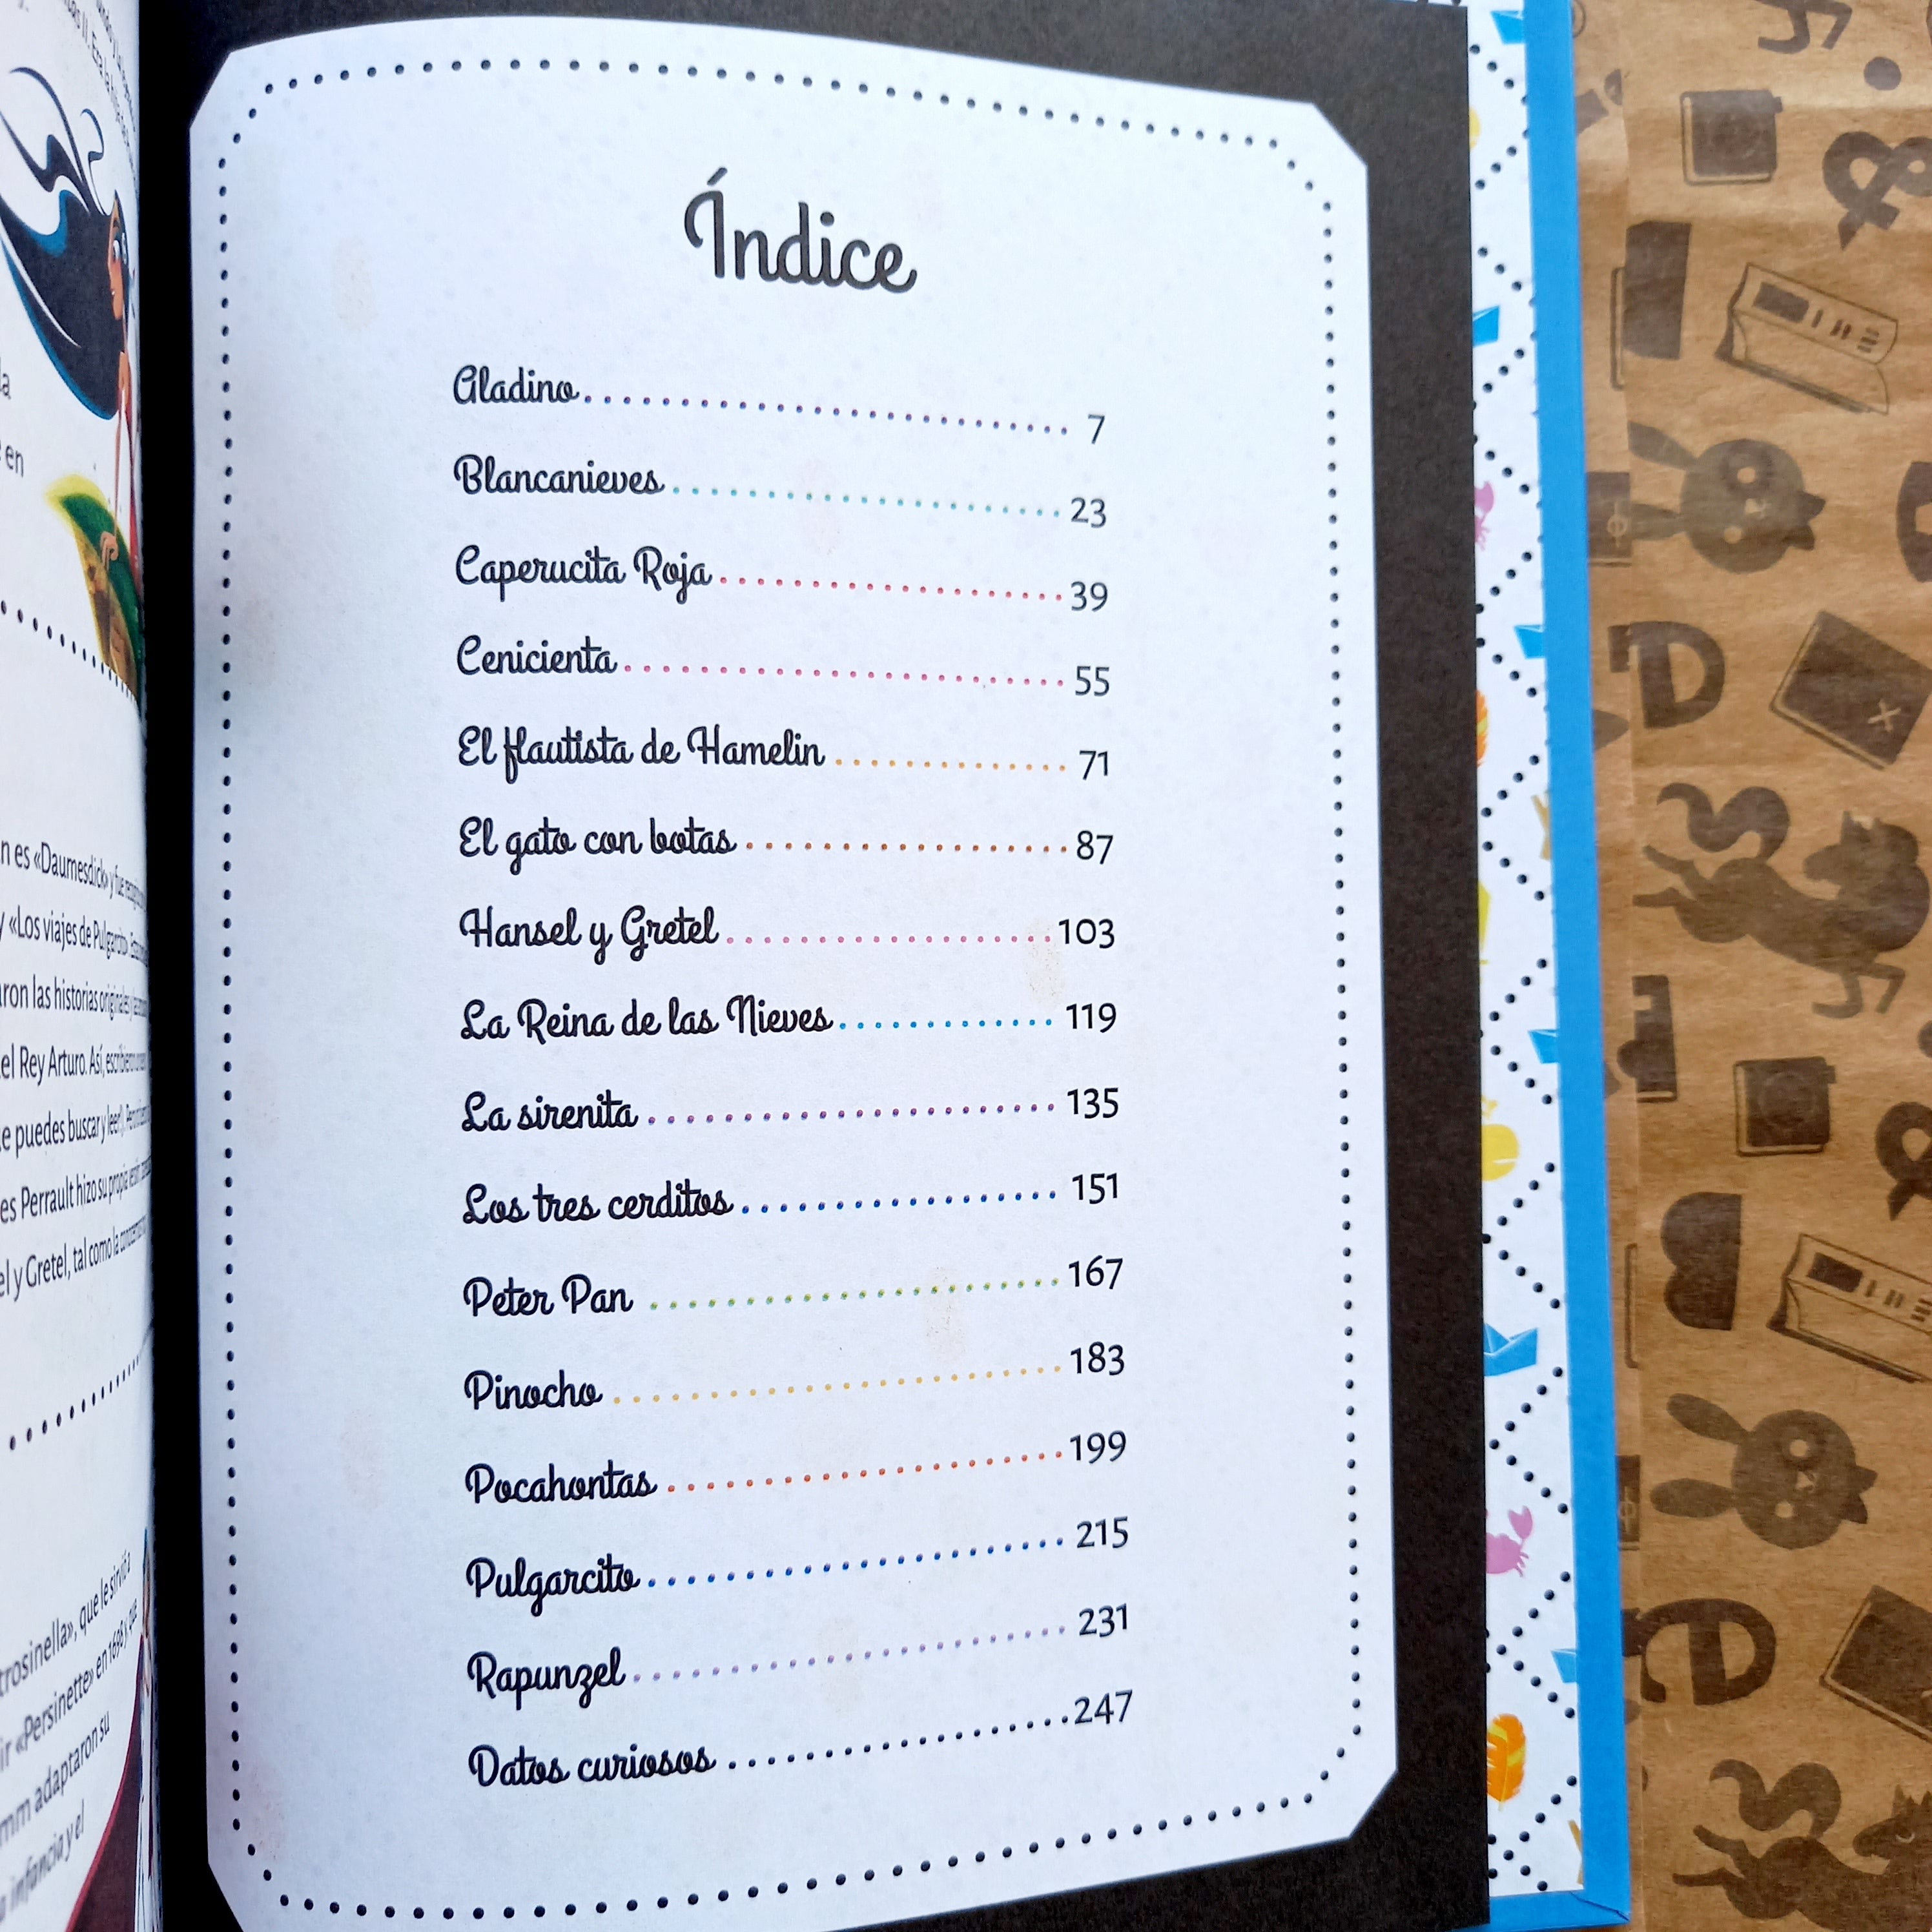 la
en
n es «Daumesdick» y fue
y «Los viajes de Pulgarcito».
aron las historias originales y
el Rey Arturo. Así, escribieron
e puedes buscar y leer!).
es Perrault hizo su propia versión,
el y Gretel, tal como la conocemos
trosinella», que le sirvió
ir «Persinette» en 1698 y que
mm adaptaron su
infancia y el
Índice
Aladino 7
Blancanieves 23
Caperucita Roja 39
Cenicienta 55
El flautista de Hamelin 71
El gato con botas 87
Hansel y Gretel 103
La Reina de las Nieves 119
La sirenita 135
Los tres cerditos 151
Peter Pan 167
Pinocho 183
Pocahontas 199
Pulgarcito 215
Rapunzel 231
Datos curiosos 247